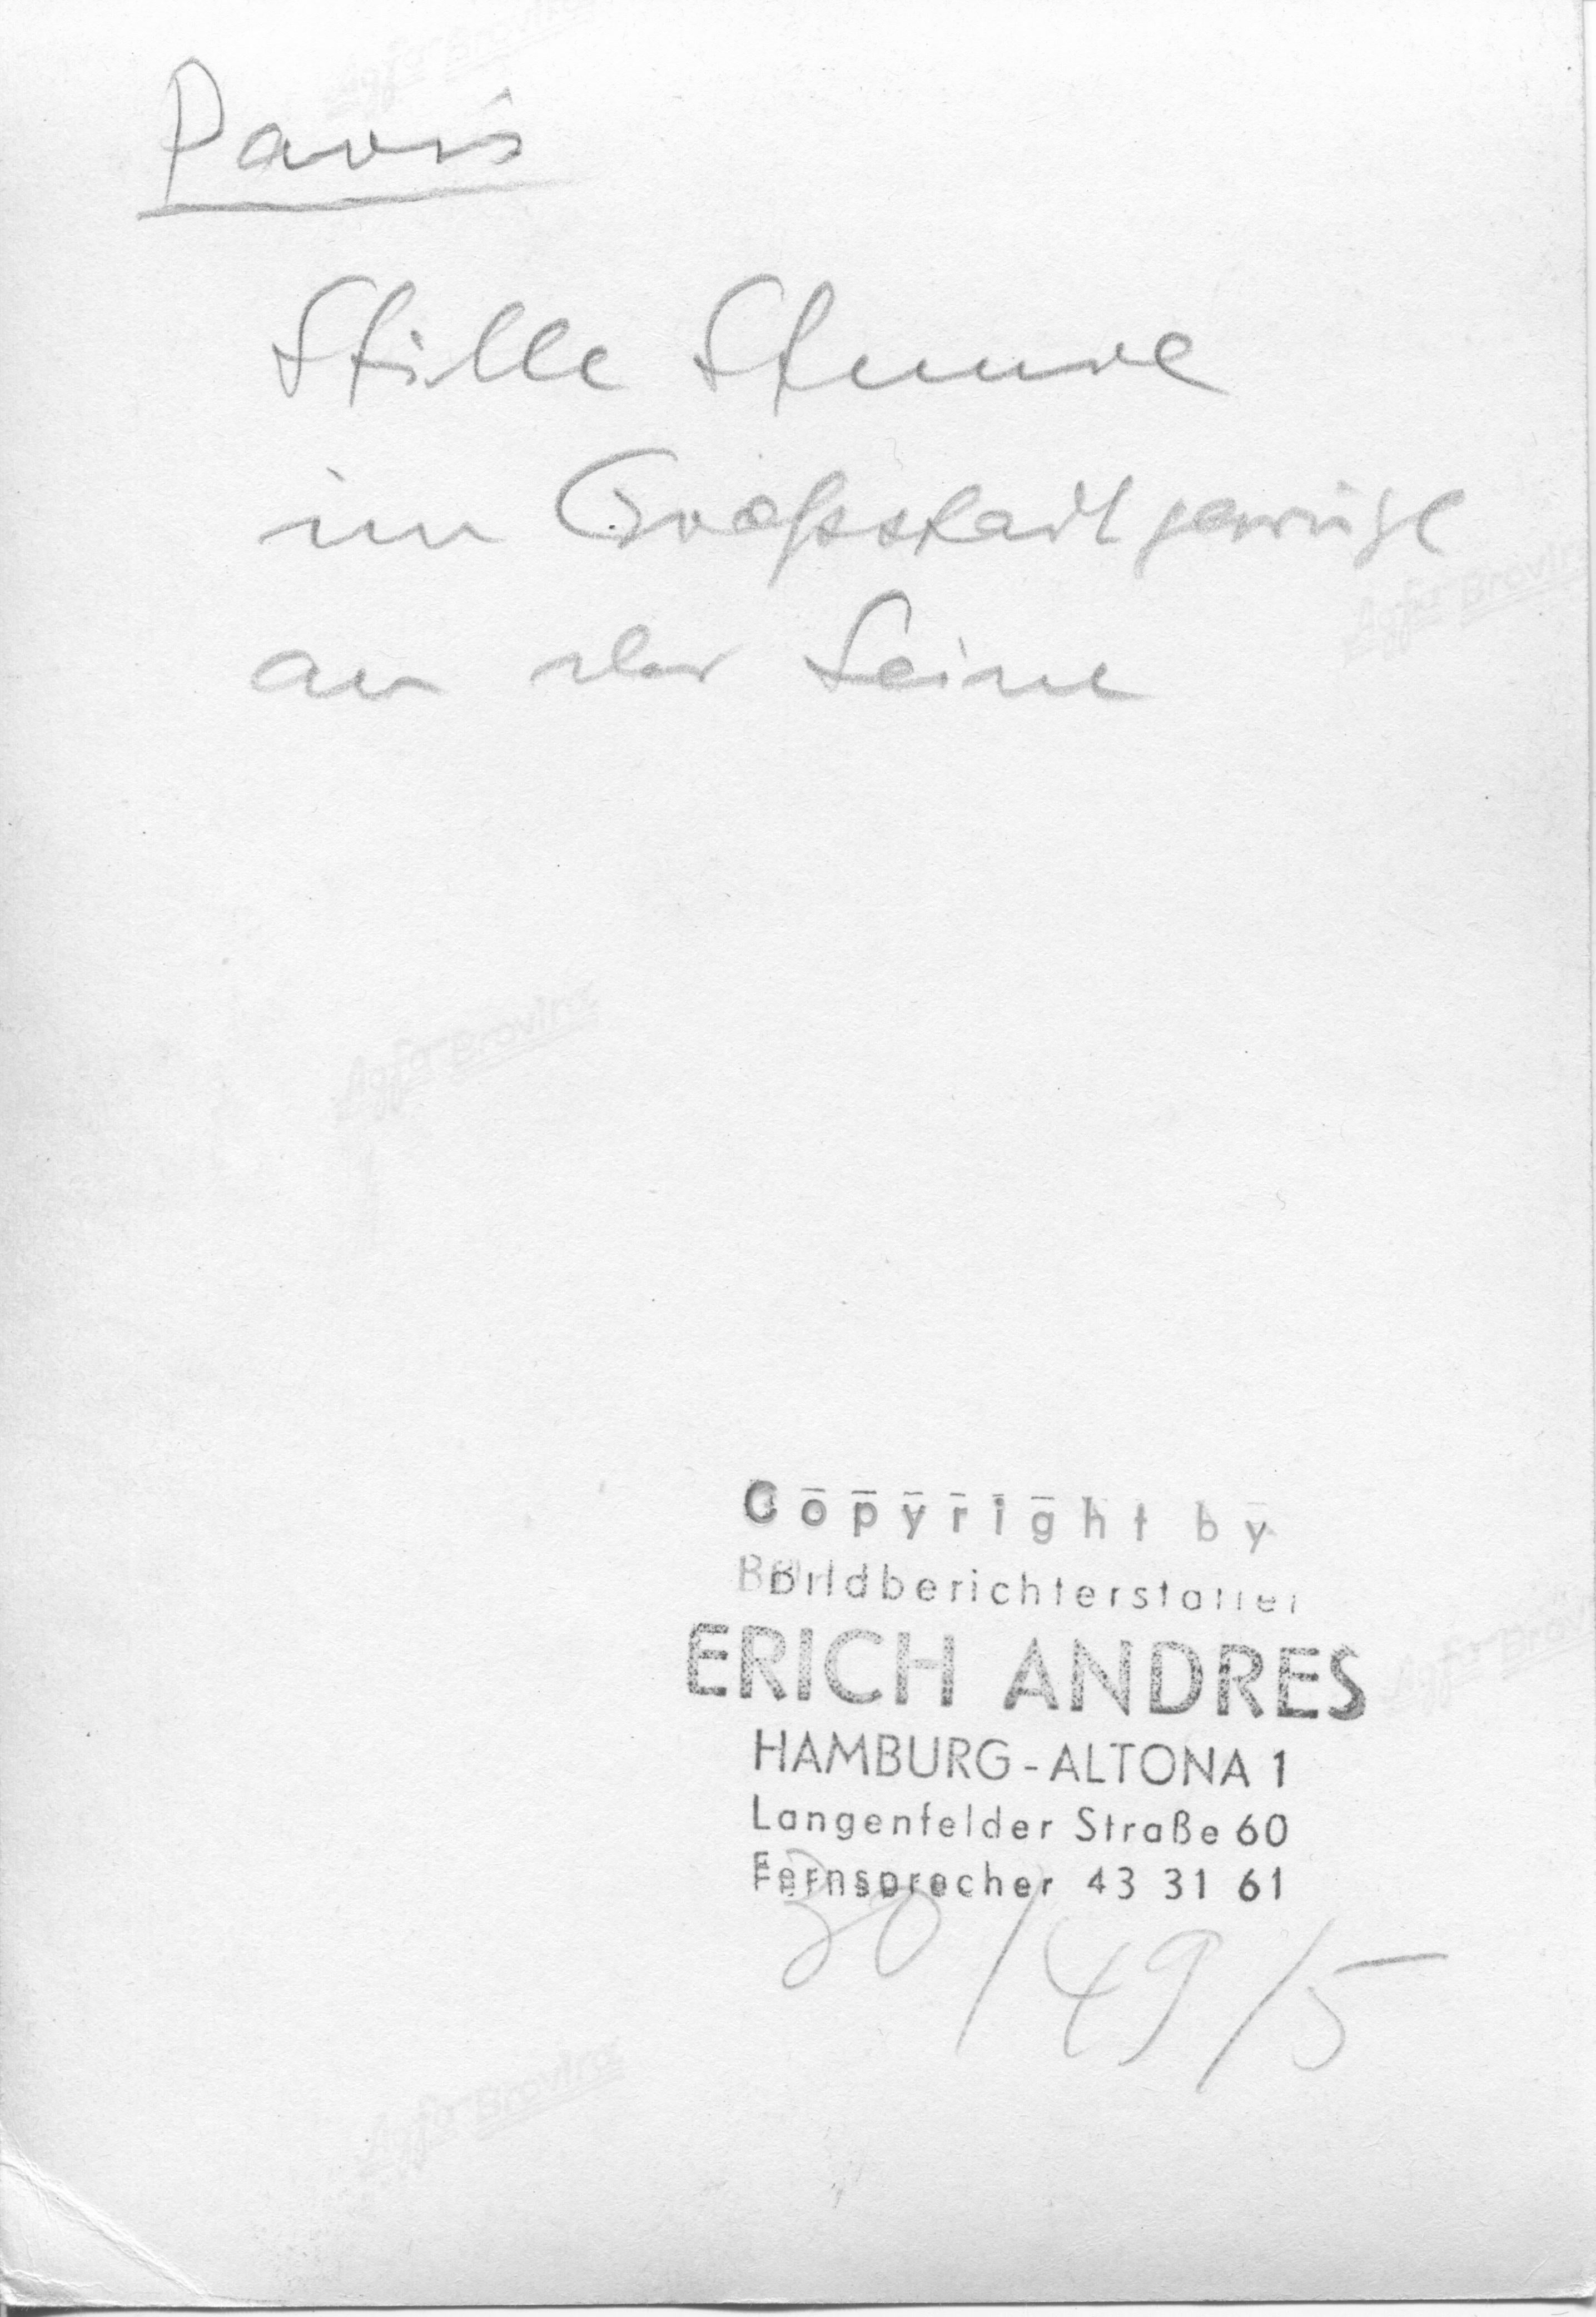 Agfa Brovira
Paris
Stille Stunde
im Großstadtgewühl
Agfa Brovira
an der Seine
Agfa Brovira
Copyright by
Bildberichterstatter
ERICH ANDRES
Agfa Brovira
HAMBURG-ALTONA 1
Langenfelder Straße 60
Fernsprecher 43 31 61
30/49/5
Agfa Brovira